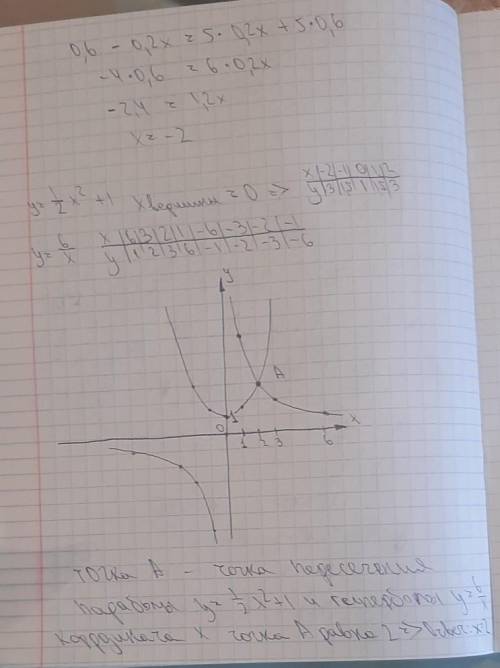 0,6 - 0,2x = 5·0,2x + 5·0,6
-4·0,6 = 6·0,2x
-2,4 = 1,2x
x = -2
y = 1/2 x² + 1 x вершины = 0 =>
x | -2 | -1 | 0 | 1 | 2
y | 3 | 1,5 | 1 | 1,5 | 3
y = 6/x
x | 6 | 3 | 2 | 1 | -6 | -3 | -2 | -1
y | 1 | 2 | 3 | 6 | -1 | -2 | -3 | -6
y
A
1
x
0
1 2 3 6
точка А - точка пересечения
параболы y = 1/2 x² + 1 и гиперболы y = 6/x
координата x точка А равна 2 => Ответ: x=2